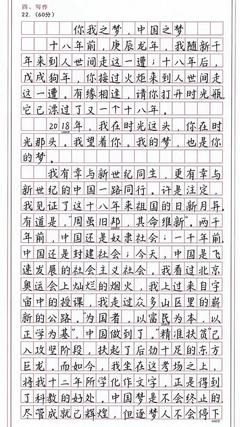 四、写作
22.（60分）
你我之梦，中国之梦
十八年前，庚辰龙年，我随新千
年来到人世间走这一遭；十八年后，
戊戌狗年，你接过火炬来到人世间走
这一遭。有缘相逢，请你打开时光瓶，
它已漂过了又一个十八年。
2018年，我在时光这头，你在时
光那头。我望着你，我的梦，也是你
的梦。
我有幸与新世纪同生，更有幸与
新世纪的中国一路同行。许是注定，
我见证了这十八年来祖国的日新月异。
有道是，“周虽旧邦，其命维新”。两千
年前，中国还是奴隶社会；一千年前，
中国还是封建社会；今天，中国是飞
速发展的社会主义社会，我看过北京
奥运会上灿烂的烟火，我上过来自宇
宙中的授课，我走过众多山区里的崭
新的公路。“为国者，以富民为本，以
正学为基”，中国做到了。“精准扶贫”已
入攻坚阶段，扶起了后劲十足的东方
巨龙。而如今，我坐在这考场之上，
将我十二年所学化作文字，正是得到
了科教的好处，中国梦是不会终止的
尽管成就已辉煌，但逐梦人不会停下